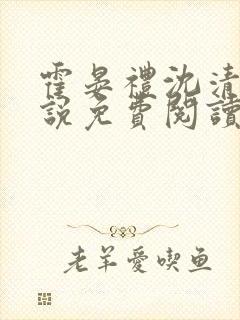 霍晏禮沈清
說免費閱讀
老羊愛喫鱼